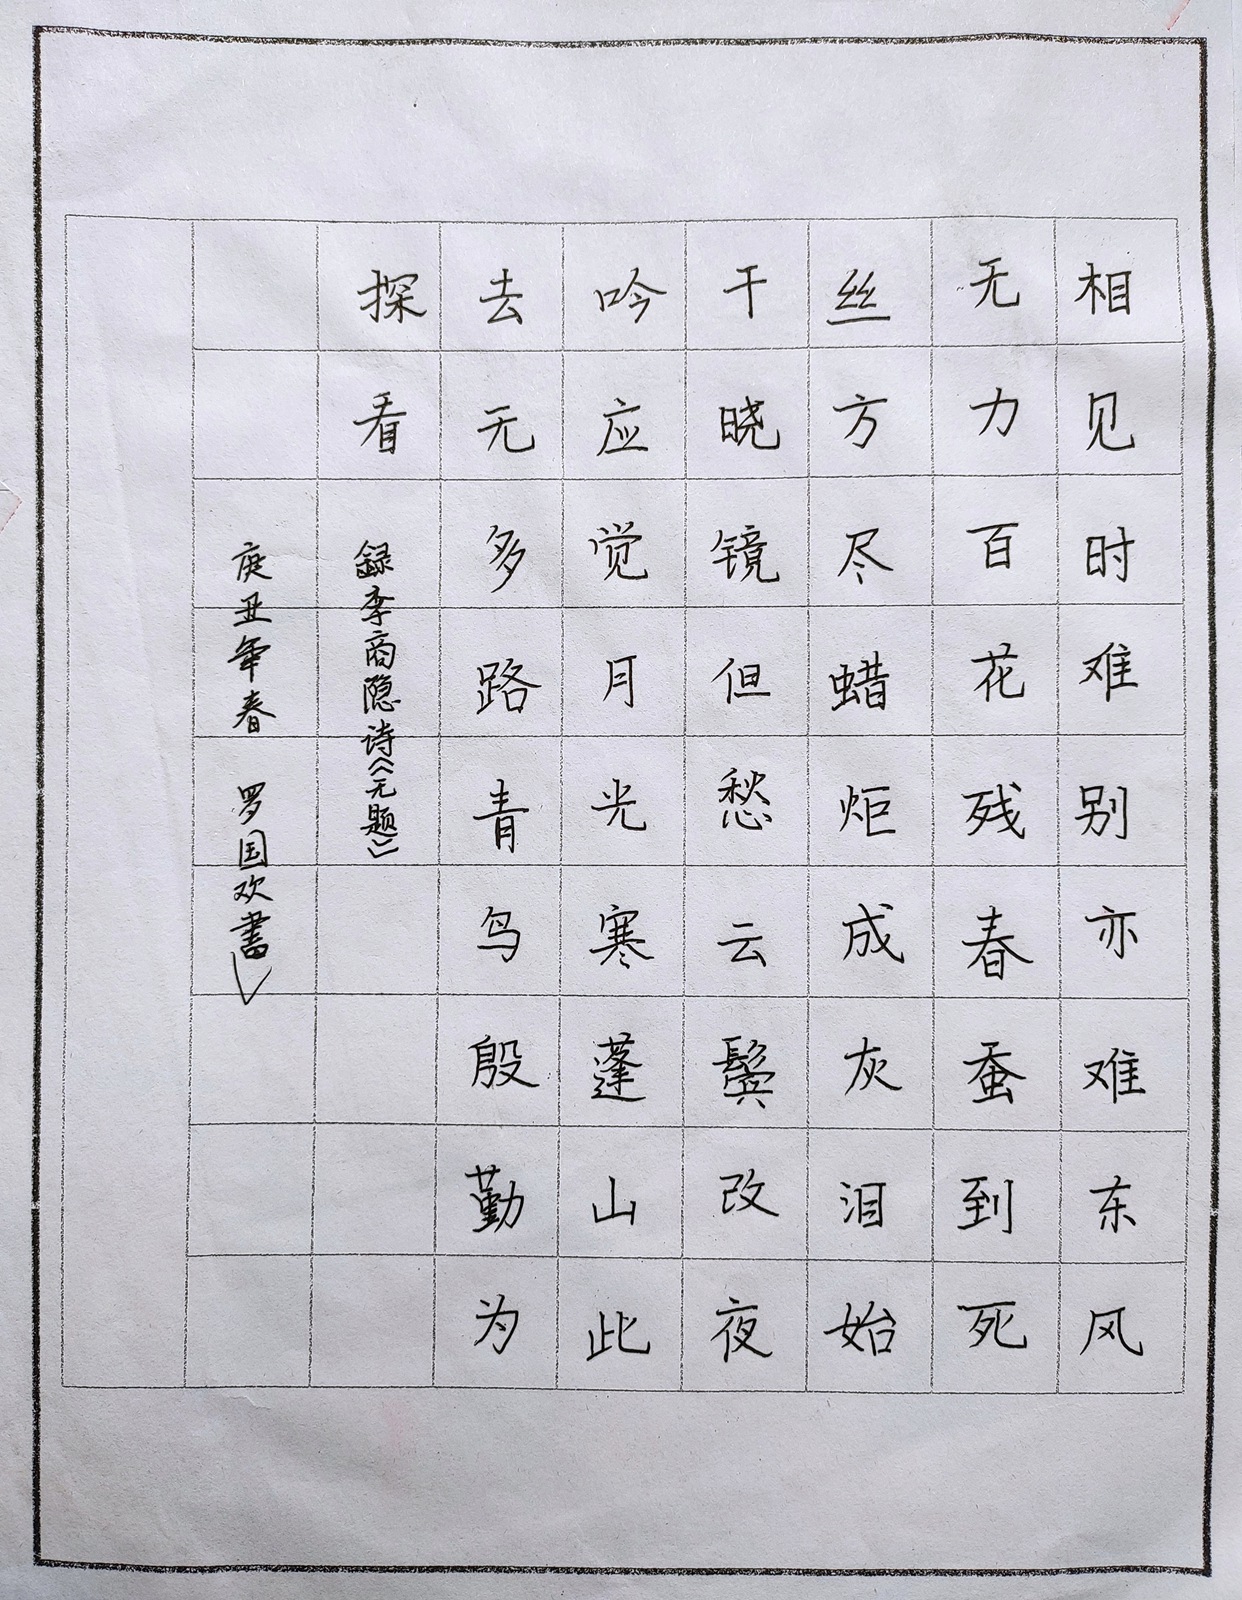 相见时难别亦难东风
无力百花残春蚕到死
丝方尽蜡炬成灰泪始
干晓镜但愁云鬓改夜
吟应觉月光寒蓬山此
去无多路青鸟殷勤为
探看
録李商隐诗《无题》
庚丑年春 罗国欢書